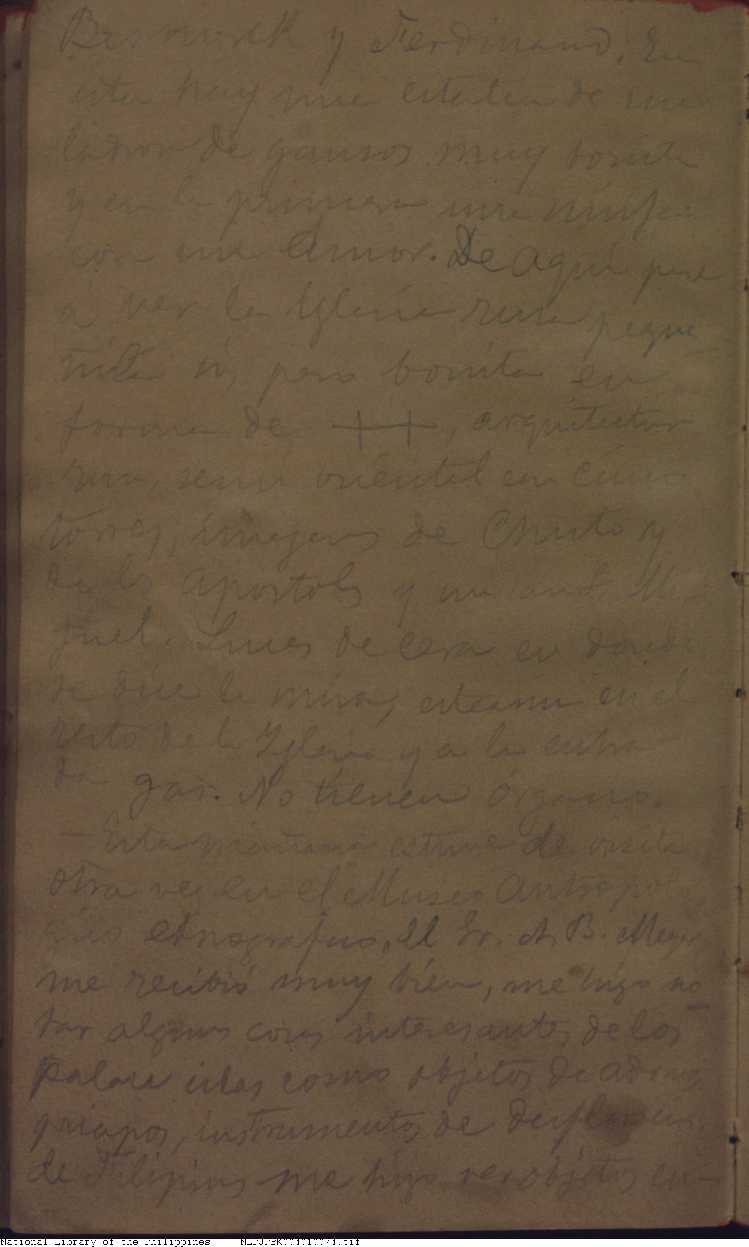 Bismarck y Ferdinand. En
esta hay una estatua de un
ladron de gansos muy bonita
y en la primera una ninfa
con un Amor. De aqui pasé
á ver la Iglesia rusa peque-
ñita si, pero bonita en
forma de ++, arquitectura
rusa, semi oriental con cinco
torres, imagenes de Christo y
de los Apostoles y un sant Mi-
guel. Luces de cera en donde
se dice la misa, estearina en el
resto de la Iglesia y a la entra-
da gas. No tienen órgano.
— Esta mañana estuve de visita
otra vez en el Museo Antropolo-
gico etnografico, el Sr. A. B. Meyer
me recibió muy bien, me hizo no-
tar algunas cosas interesantes de las
Palaos islas como objetos de adorno,
priapos, instrumentos de
de Filipinas me hizo ver objetos en-
National Library of the Philippines